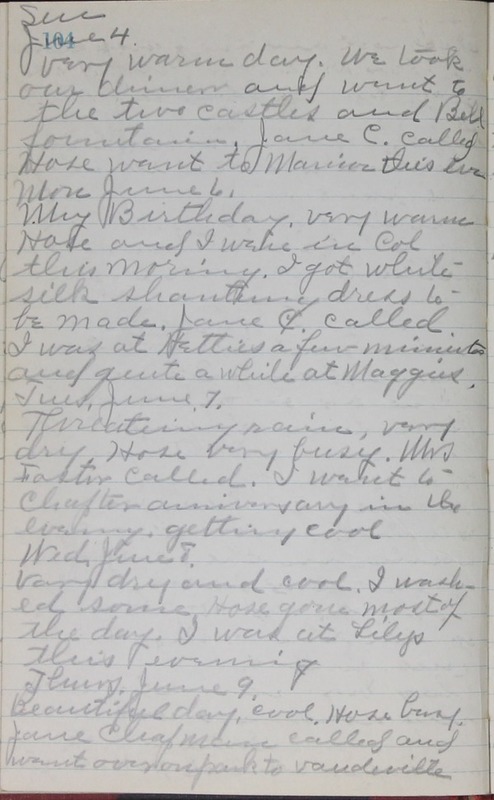 Sun
June 4.
104
very warm day. We took
our dinner and went to
the two castles and Bell
fountain. Jane C. called
Hose went to Marion this eve
Mon June 6.
My Birthday, very warm
Hose and I were in Col
this morning. I got white
silk shantung dress to
be made. Jane C. called
I was at Netties a few minutes
and quite a while at Maggies.
Tues. June 7.
Threatening rain, very
dry. Hose very busy. Mrs
Foster called. I went to
Chapter anniversary in the
evening. getting cool
Wed. June 8.
very dry and cool. I wash-
ed some Hose gone most of
the day. I was at Lilys
this evening
Thurs. June 9.
Beautiful day, cool. Hose busy.
Jane Chapman called and
went over on park to vaudeville